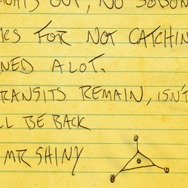 OUT, NO
FOR NOT CATCHIN
NED A LOT.
TRANSITS REMAIN, ISN'T
LL BE BACK
MR SHINY